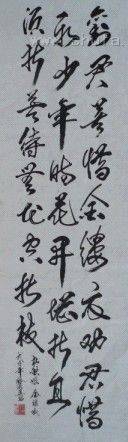 勸君莫惜金縷衣劝君惜
取少年時花开堪折直
須折莫待無花空折枝
杜秋娘金縷衣